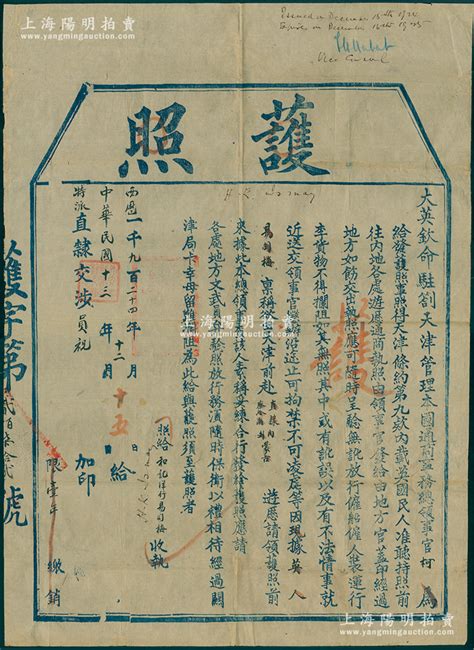 上海陽明拍賣
www.yangmingauction.com
Issued on December 15th 1924
Expires on December 15th 1925
護照
大英欽命駐劄天津管理本國通商事務總領事官柯 為
給發護照事照得天津條約第九款內載英國民人准聽持照前
往內地各處遊歷通商執照由領事官發給由地方官蓋印經過
地方如飭交出執照應可隨時呈驗無訛放行僱船僱人裝運行
李貨物不得攔阻如其無照其中或有訛誤以及有不法情事就
近送交領事官懲辦沿途止可拘禁不可凌虐等因現據英人
稟稱欲由天津前赴
遊歷請領護照前
來據此本總領事 該人素稱妥練合行發給護照應請
各處地方文武 驗照放行務須隨時保衛以禮相待經過關
津局卡幸毋留難攔阻為此給與護照須至護照者
照給 和記洋行 收執
西歷一千九百二十四年
中華民國十三年十二月十五日給
特派直隸交涉員祝 加印
護字第 號
限壹年 繳銷
上海陽明拍賣
www.yangmingauction.com